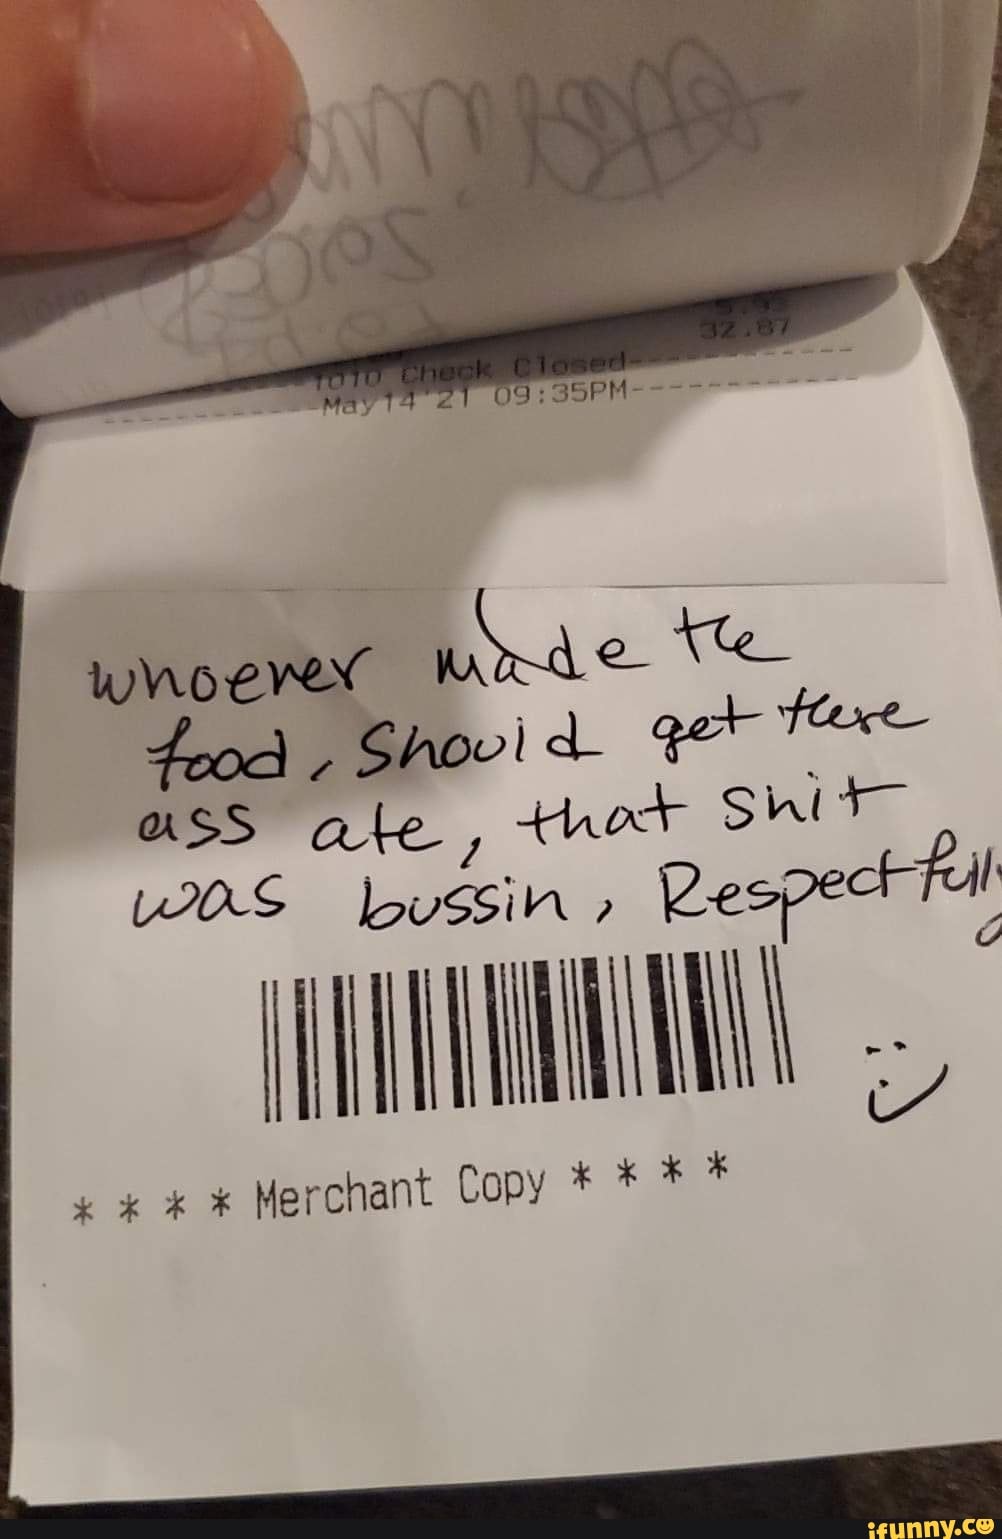 32.87
1010 Check Closed
May14'21 09:35PM
whoever made the
food, Should get there
ass ate, that shit
was bussin, Respectfully
:)
* * * * Merchant Copy * * * *
ifunny.co